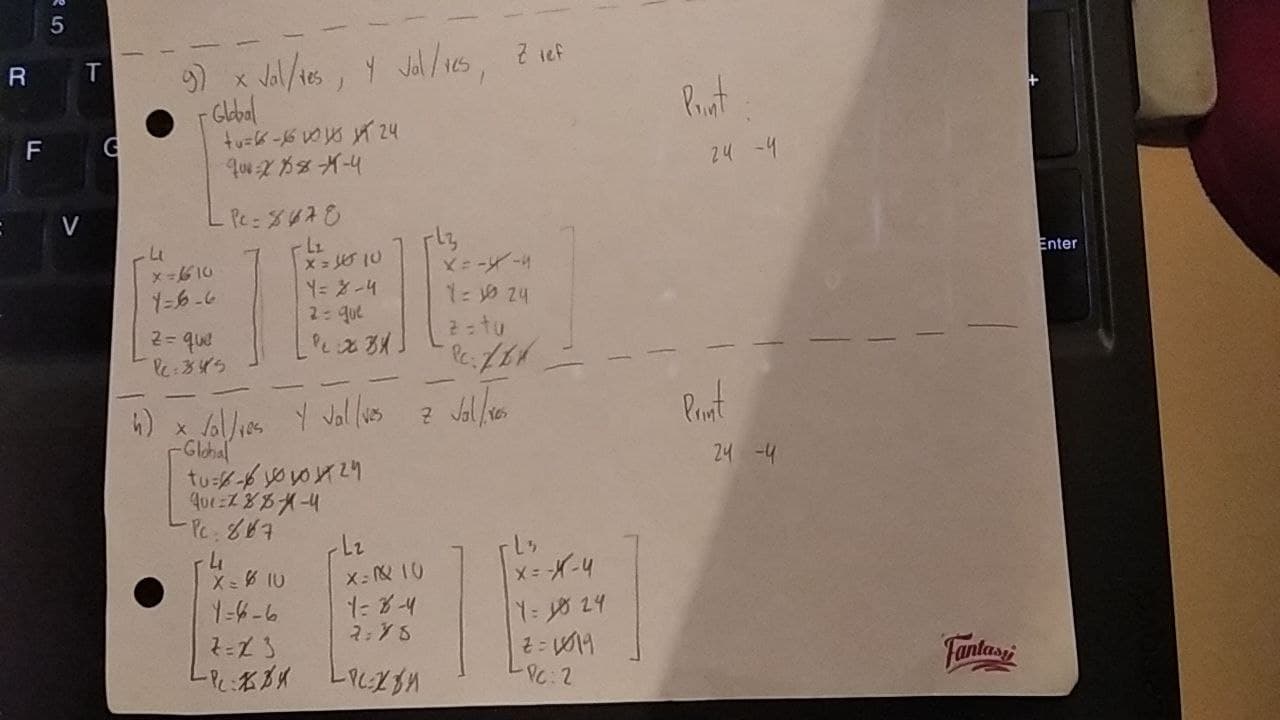 %
5
R T
F G
V
+
Enter
g) x Val/res, Y Val/res, Z ref
Global
tu=6 -6 10 10 24
que=2 3 8 -4 -4
Pc = 5 6 7 8
Print:
24 -4
L1
x = 6 10
Y = 6 -6
Z = que
Pc: 3 4 5
L2
x = 10 10
Y = 3 -4
Z = que
Pc: 2 3 4
L3
x = -4 -4
Y = 10 24
Z = tu
Pc:
h) x Val/res Y Val/res Z Val/res
Global
tu=6 -6 10 10 24
que=2 3 8 -4 -4
Pc: 5 6 7
Print
24 -4
L1
x = 6 10
Y = 6 -6
Z = 2 3
Pc:
L2
x = 10 10
Y = 3 -4
Z = 3 8
Pc:
L3
x = -4 -4
Y = 10 24
Z = 10 19
Pc: 2
Fantasy